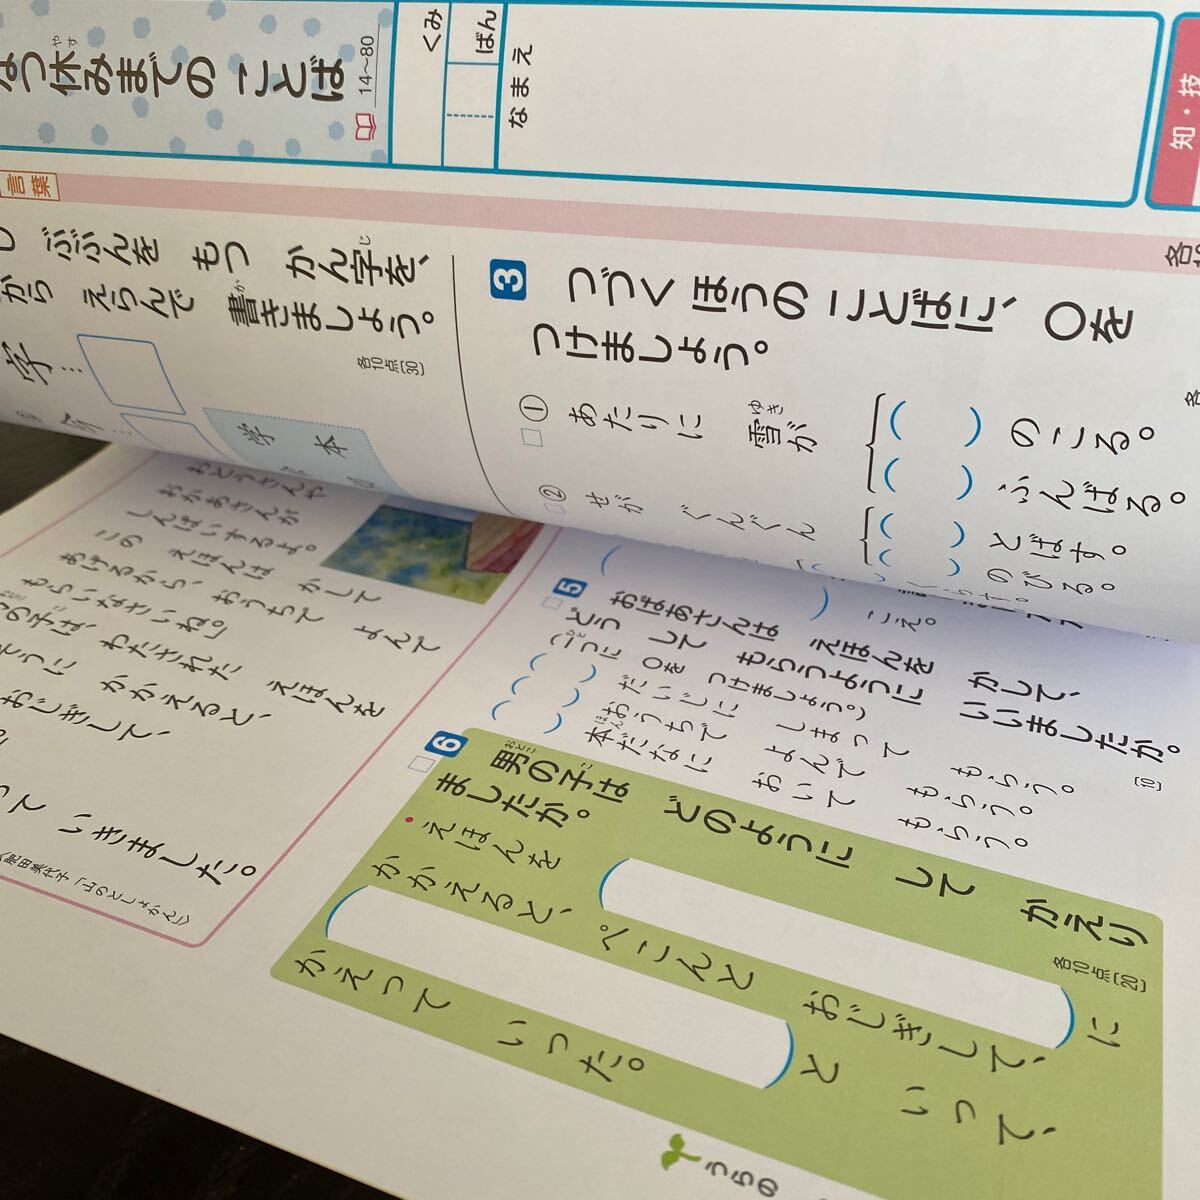 なつ休みまでの ことば
やす
14〜80
くみ
ばん
なまえ
知・技
言葉
ぶぶんを もつ かん字を、
じ
から えらんで 書きましょう。
か
各10点〔30〕
字…
今…
学 本
3 つづく ほうの ことばに、○を
つけましょう。
① あたりに 雪が
ゆき
( ) のこる。
( ) ふんばる。
② せが ぐんぐん
( ) とばす。
( ) のびる。
こえ。
おとうさんや
おかあさんが
しんぱいするよ。
この えほんは かして
あげるから、おうちで よんで
もらいなさいね。」
の子は、わたされた えほんを
そうに かかえると、
おじぎして、
って いきました。
〈肥田美代子「山のとしょかん」〉
5 おばあさんは えほんを かして、
どう して もらうように いいましたか。
(一つに ○を つけましょう。)
ひと
〔10〕
( ) だいじに しまって もらう。
( ) おうちで よんで もらう。
( ) 本だなに おいて もらう。
ほん
6 男の子は どのように して かえり
おとこ こ
ましたか。
各10点〔20〕
・えほんを ( ) に
かかえると、ぺこんと おじぎして、
( ) と いって、
かえって いった。
うらの